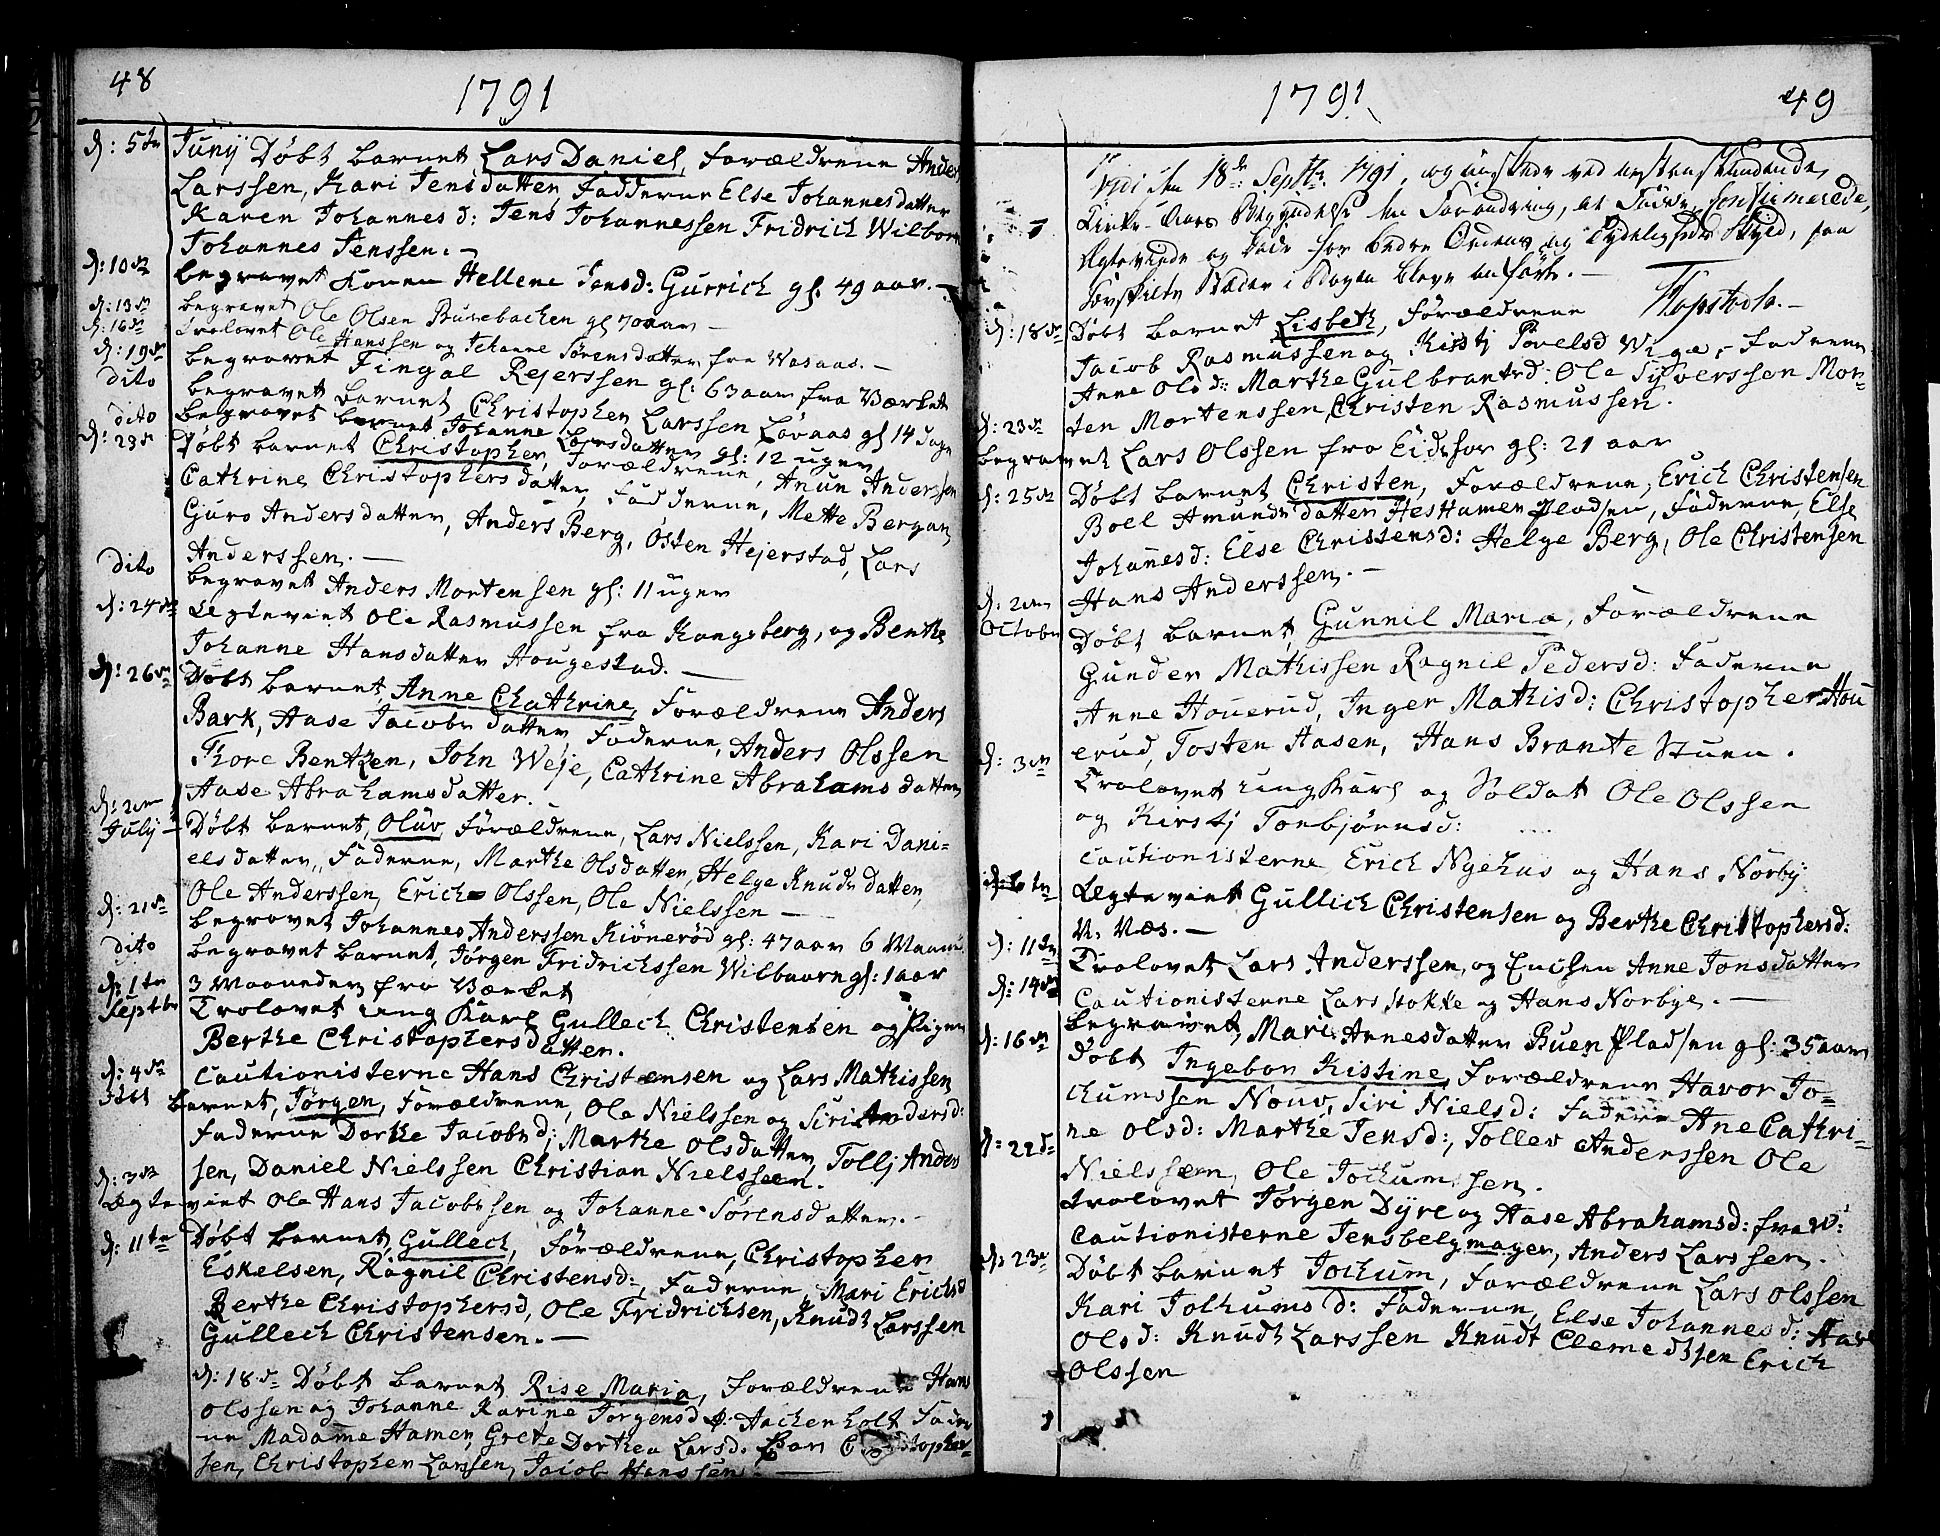 48
1791
d: 5te Junÿ Døbt barnet Lars Daniel, Forældrene Anders
Larssen, Kari Jensdatter, Fadderne Else Johannesdatter
Karen Johannesd: Jens Johannessen Fridrich Wilborn
Johannes Jenssen. —
d: 10de begravet Konen Hellene Jensd: Gurrich gl: 49 aar. —
d: 13de begravet Ole Olsen Busebachen gl 70 aar —
d: 16de Trolovet Ole Hanssen og Johanne Sørensdatter fra Vasaas. —
d: 19de begravet Fingal Rejerssen gl: 63 aar fra Værket
dito begravet barnet Christopher Larssen Løvaas gl 14 dage
dito begravet barnet Johanne Larsdatter gl: 12 uger
d: 23de Døbt barnet Christopher, Forældrene, Anun Anderssen
Cathrine Christophersdatter, Fadderne, Mette Bergan
Guro Andersdatter, Anders Berg, Østen Hejerstad, Lars
Anderssen. —
dito begravet Anders Mortensen gl: 11 uger
d: 24de Legteviet Ole Rasmussen fra Kongsberg, og Benthe
Johanne Hansdatter Hougestad. —
d: 26de Døbt barnet, Anne Chathrine, Forældrene Anders
Bark, Aase Jacobsdatter, Faderne, Anders Olssen
Thore Bentzen, John Weje, Cathrine Abrahamsdatter
Aase Abrahamsdatter.
d: 2den
July — Døbt barnet, Oluv, Forældrene, Lars Nielssen, Kari Dani-
elsdatter, Faderne, Marthe Olsdatter, Helge Knudsdatter,
Ole Anderssen, Erich Olssen, Ole Nielssen —
d: 21de begravet Johannes Anderssen Kiønerød gl: 47 aar 6 Maan:
dito begravet barnet, Jørgen Fridrichssen Wilbaarn gl: 1 aar
3 Maaneder fra Værket
d: 1te
Septbr Trolovet ung Karl Gullech Christensen og Pigen
Berthe Christophersdatter.
Cautionisterne Hans Christensen og Lars Mathissen
d: 4de
Døbt barnet, Jørgen, Forældrene, Ole Nielssen og Siri Andersd:
Faderne Dorthe Jacobsd; Marthe Olsdatter, Tollj Anders
sen, Daniel Nielssen Christian Nielsseen.
d: 3de
Legteviet Ole Hans Jacobssen og Johanne Sørensdatter. —
d: 11te Døbt barnet, Gullech, Forældrene, Christopher
Eskelsen, Ragnil Christensd:, Faderne, Mari Erichsd
Berthe Christophersd, Ole Fridrichsen, Knudt Larssen
Gullech Christensen. —
d: 18de Døbt barnet Rise Maria, Forældrene Hans
Olssen og Johanne Karine Jørgensd Aachenholt Fader
ne Madame Hamer, Grete Dorthea Larsd: Christopher-
sen, Christopher Larssen, Jacob Hanssen. —
1791
49
Vidi den 18de Septbr: 1791, og ved næstinstundende
Kirke-Aars Begyndelse en Forandring, at Fødde, Confirmerede,
Ægteviede og Døde for bedre Ordens og Tydeligheds Skyld, paa
forskellte Steder i Bogen bleve anførte. —
d: 18de Døbt barnet Lisbeth, Forældrene
Jacob Rasmussen og Kistj Povelsd Wige, Faderne
Anne Olsd: Marthe Gulbrantsd: Ole Syverssen Mor-
ten Mortenssen, Christen Rasmussen.
d: 23de
begravet Lars Olssen fra Eidsfos gl: 21 aar
d: 25de Døbt barnet Christen, Forældrene, Erich Christensen
Boel Amundsdatter Hesthamer Pladsen, Faderne, Else
Johanesd: Else Christensd: Helge Berg, Ole Christensen
Hans Anderssen. —
d: 2den
Octobr Døbt barnet, Gunnil Maria, Forældrene
Gunder Mathissen Ragnil Pedersd: Faderne
Anne Houerud, Inger Mathisd: Christopher Hou
erud, Tosten Aasen, Hans Brante Stuen.
d: 3de Trolovet ungkarl og Soldat Ole Olssen
og Kirstj Tonbjørnsd:
Cautionisterne Erich Nyehus og Hans Norby
d: 6te Legteviet Gullich Christensen og Berthe Christophersd:
N. Næs. —
d: 11te Trolovet Lars Anderssen, og Enchen Anne Jonsdatter
Cautionisterne Lars Stokke og Hans Norbye. —
d: 14de begravet, Mari Arnesdatter Buen Pladsen gl: 35 aar
d: 16de Døbt Ingebor Kistine, Forældrene Havor Jo-
chumssen Nouv, Siri Nielsd: Faderne Ane Cathri-
ne Olsd: Marthe Jensd:, Tollev Anderssen Ole
Nielssen, Ole Jochumssen.
d: 22de Trolovet Jørgen Dyre og Aase Abrahamsd: fra W:
Cautionisterne Jens belgmager, Anders Larssen.
d: 23de Døbt barnet Jochum, Forældrene Lars Olssen
Kari Jolhumsd: Faderne, Else Johannesd:
Olsd: Knudt Larssen Knudt Clemedtsen Erich
Olssen